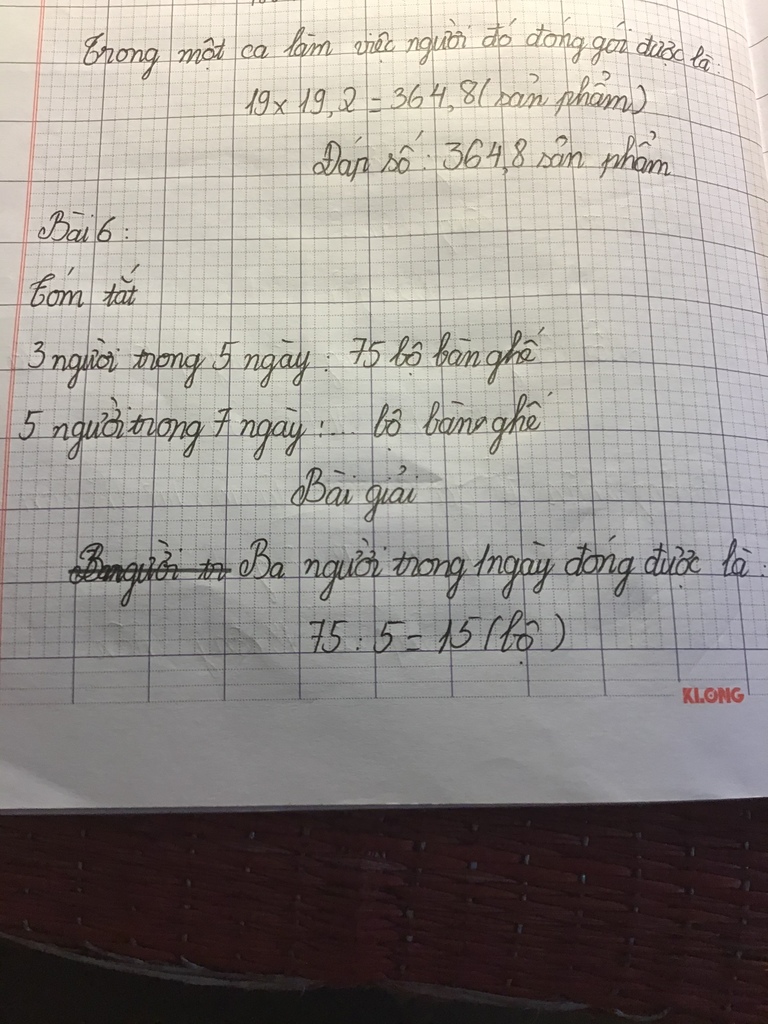 Trong một ca làm việc người đó đóng gói được là:
19 x 19,2 = 364,8 (sản phẩm)
Đáp số: 364,8 sản phẩm
Bài 6:
Tóm tắt
3 người trong 5 ngày: 75 bộ bàn ghế
5 người trong 7 ngày: ... bộ bàn ghế
Bài giải
Ba người trong 1 ngày đóng được là:
75 : 5 = 15 (bộ)
KLONG